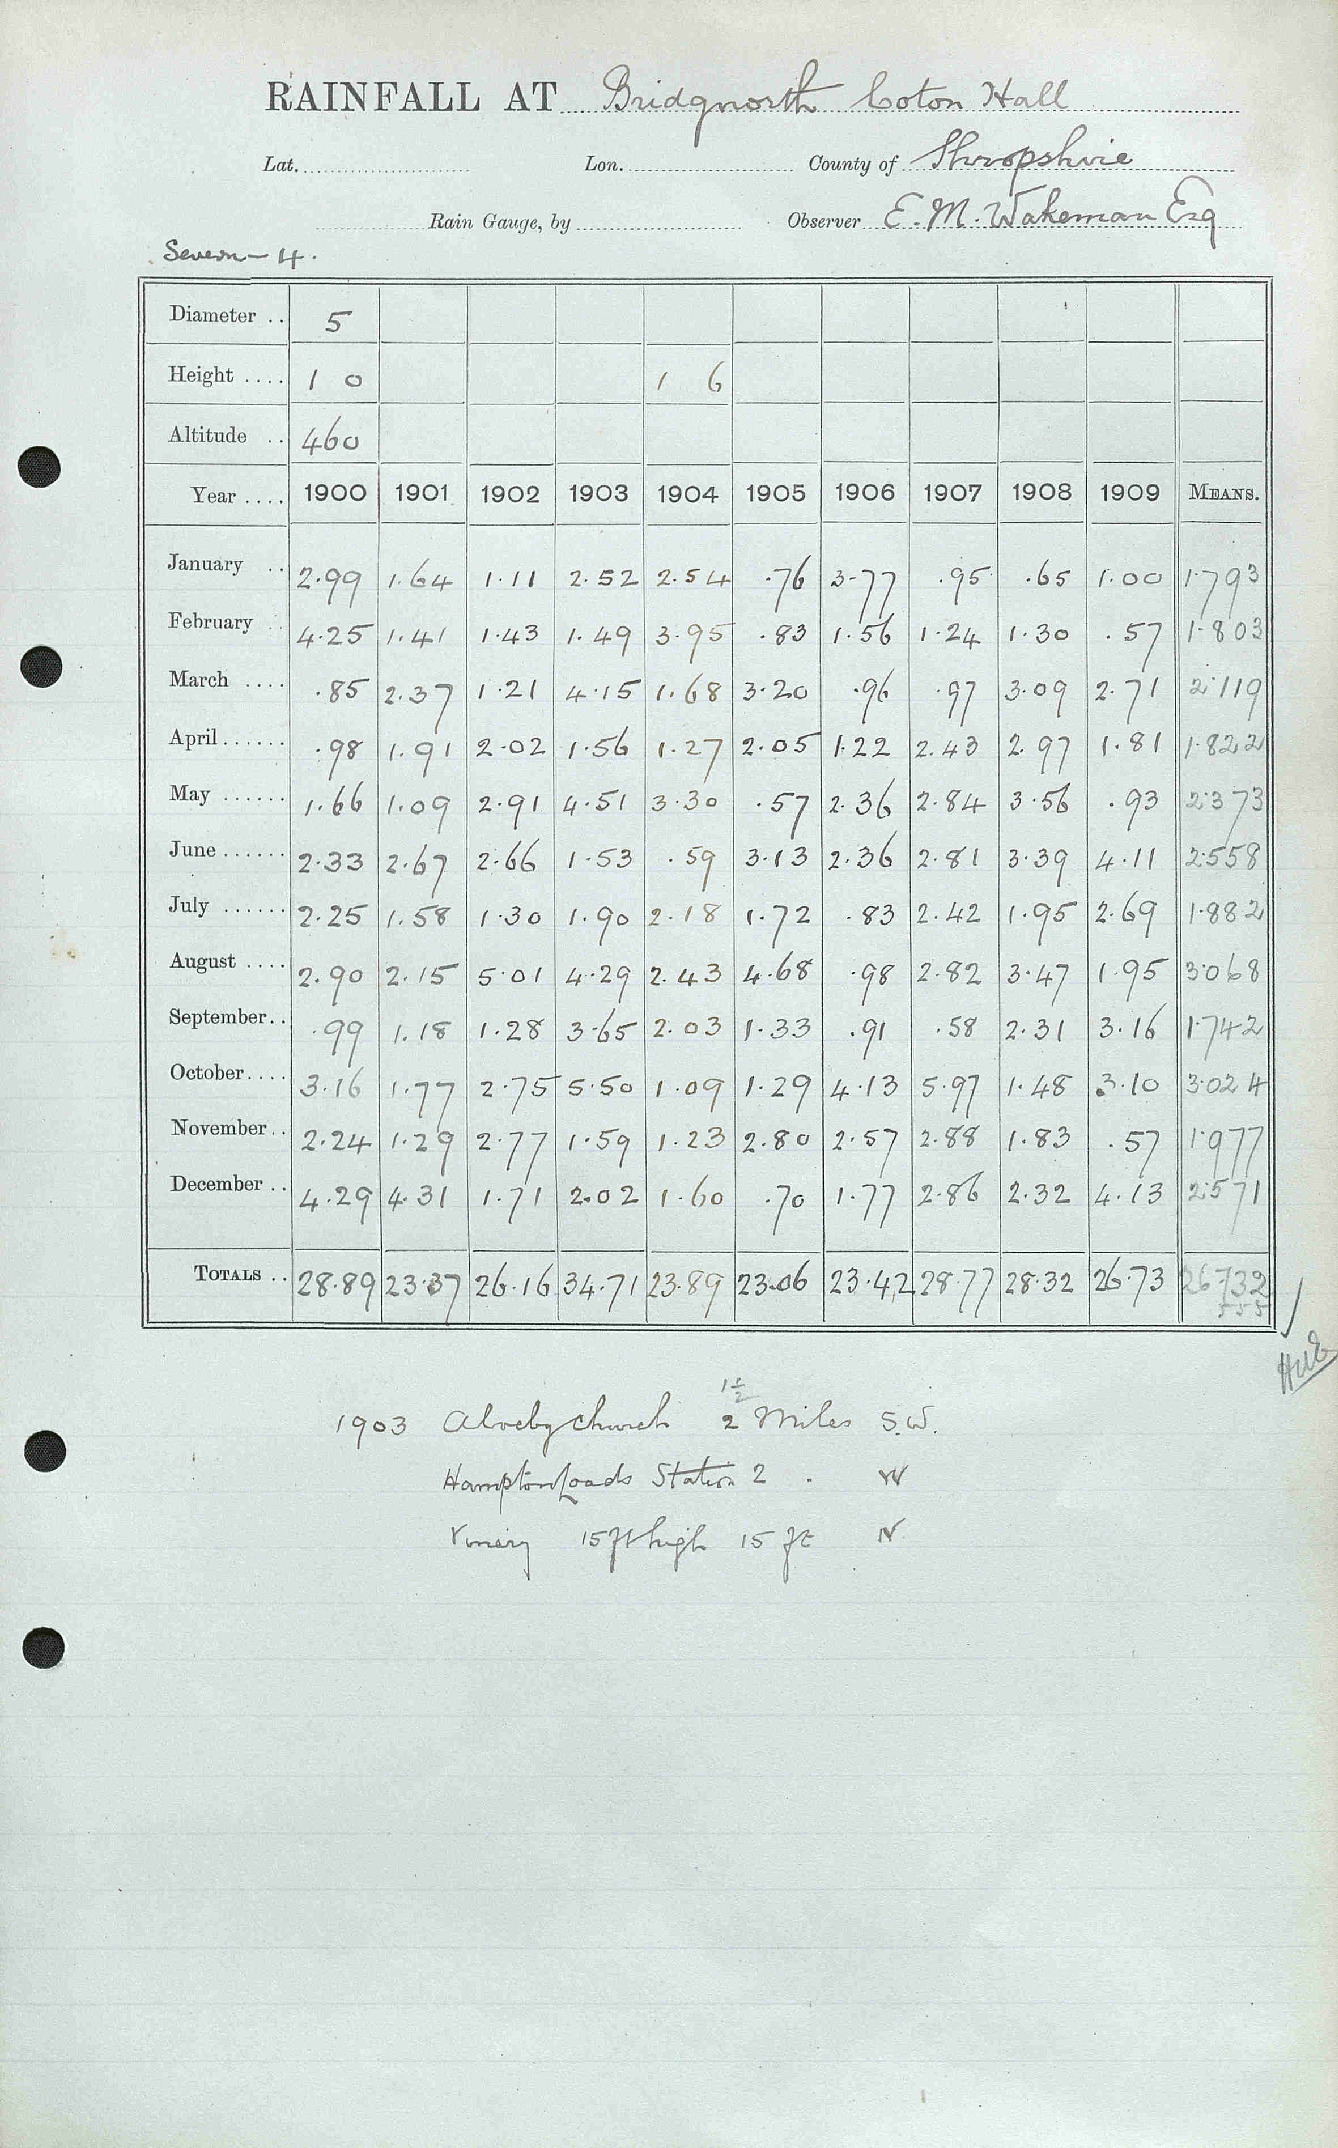 RAINFALL AT Bridgnorth Coton Hall
Lat. Lon. County of Shropshire
Rain Gauge, by Observer E. M. Wakeman Esq
Severn - 4.
Diameter .. 5
Height .... 1 0 1 6
Altitude .. 460
Year .... 1900 1901 1902 1903 1904 1905 1906 1907 1908 1909 MEANS.
January .. 2.99 1.64 1.11 2.52 2.54 .76 3.77 .95 .65 1.00 1.793
February .. 4.25 1.41 1.43 1.49 3.95 .83 1.56 1.24 1.30 .57 1.803
March .... .85 2.37 1.21 4.15 1.68 3.20 .96 .97 3.09 2.71 2.119
April...... .98 1.91 2.02 1.56 1.27 2.05 1.22 2.43 2.97 1.81 1.822
May ...... 1.66 1.09 2.91 4.51 3.30 .57 2.36 2.84 3.56 .93 2.373
June ...... 2.33 2.67 2.66 1.53 .59 3.13 2.36 2.81 3.39 4.11 2.558
July ...... 2.25 1.58 1.30 1.90 2.18 1.72 .83 2.42 1.95 2.69 1.882
August .... 2.90 2.15 5.01 4.29 2.43 4.68 .98 2.82 3.47 1.95 3.068
September.. .99 1.18 1.28 3.65 2.03 1.33 .91 .58 2.31 3.16 1.742
October.... 3.16 1.77 2.75 5.50 1.09 1.29 4.13 5.97 1.48 3.10 3.024
November.. 2.24 1.29 2.77 1.59 1.23 2.80 2.57 2.88 1.83 .57 1.977
December .. 4.29 4.31 1.71 2.02 1.60 .70 1.77 2.86 2.32 4.13 2.571
TOTALS .. 28.89 23.37 26.16 34.71 23.89 23.06 23.42 28.77 28.32 26.73 26.732
1½
1903 Alveley church 2 Miles S.W.
Hampton Loads Station 2 . W
Vinery 15 ft high 15 ft N